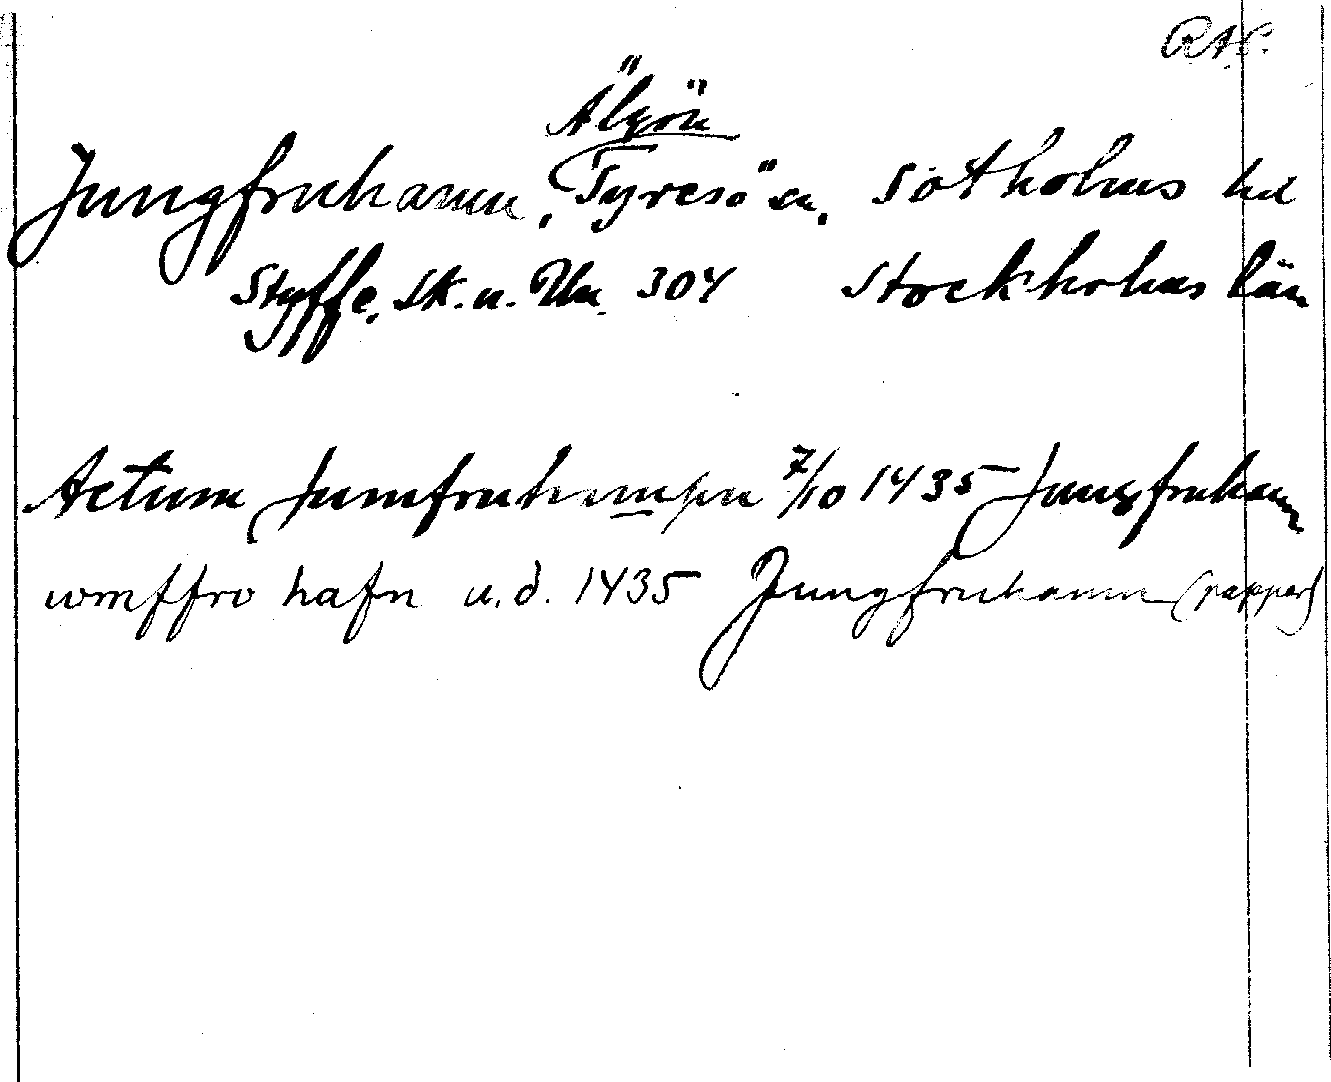 RAP.
Älgön
Jungfruhamn, Tyresö sn, Sotholms hd
Styffe, Sk. u. Un. 304 Stockholms län
Actum Jumfruhampn 7/10 1435 Jungfruhamn
womffro hafn u.d. 1435 Jungfruhamn (papper)